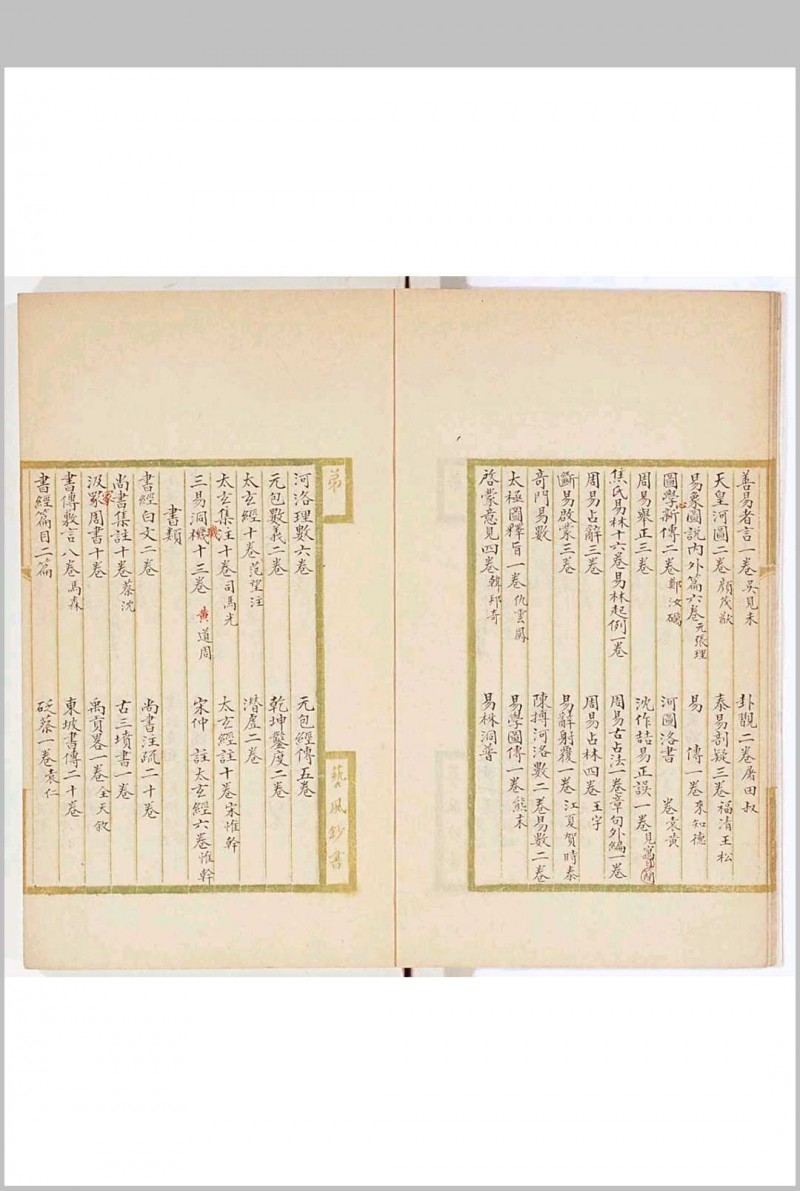 善易者言一卷 吳見未 卦觀二卷 屠田叔
天皇河圖二卷 顏茂猷 泰易剖疑三卷 福清王松
易象圖說內外篇六卷 元張理 易 傳一卷 來知德
圖學新傳二卷 鄭汝礪 河圖洛書 卷 袁黃
周易舉正三卷 沈作喆易正誤一卷 見寓
焦氏易林十六卷易林起例一卷 周易古占法一卷章句外編一卷
周易占辭三卷 周易占林四卷 王宇
斷易啟蒙三卷 易辭射覆一卷 江夏賀時泰
奇門易數 陳摶河洛數二卷易數二卷
太極圖釋旨一卷 仇雲鳳 易學圖傳一卷 熊未
啓蒙意見四卷 韓邦奇 易林洞普
弟
藝風鈔書
河洛理數六卷 元包經傳五卷
元包數義二卷 乾坤鑿度二卷
太玄經十卷 范望注 潛虛二卷
太玄集注十卷 司馬光 太玄經註十卷 宋惟幹
三易洞機十三卷 黃道周 宋仲 註太玄經六卷 惟幹
書類
書經白文二卷 尚書注疏二十卷
尚書集註十卷 蔡沈 古三墳書一卷
汲冢周書十卷 禹貢畧一卷 全天敘
書傳敷言八卷 馬森 東坡書傳二十卷
書經篇目二篇 砭蔡一卷 袁仁